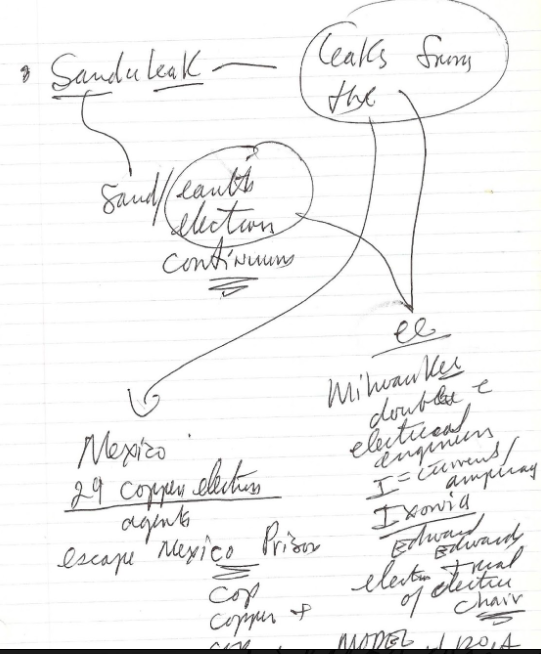 Sanduleak — leaks from
the
Sand/earth
electron
continuum
ee
Milwaukee
double e
electrical
engineers
I = current/
amperag
Ixonia
Edward Edwards
electric trial
of electric
chair
Mexico
29 copper electron
agents
escape Mexico Prison
cop
copper +
MODEL